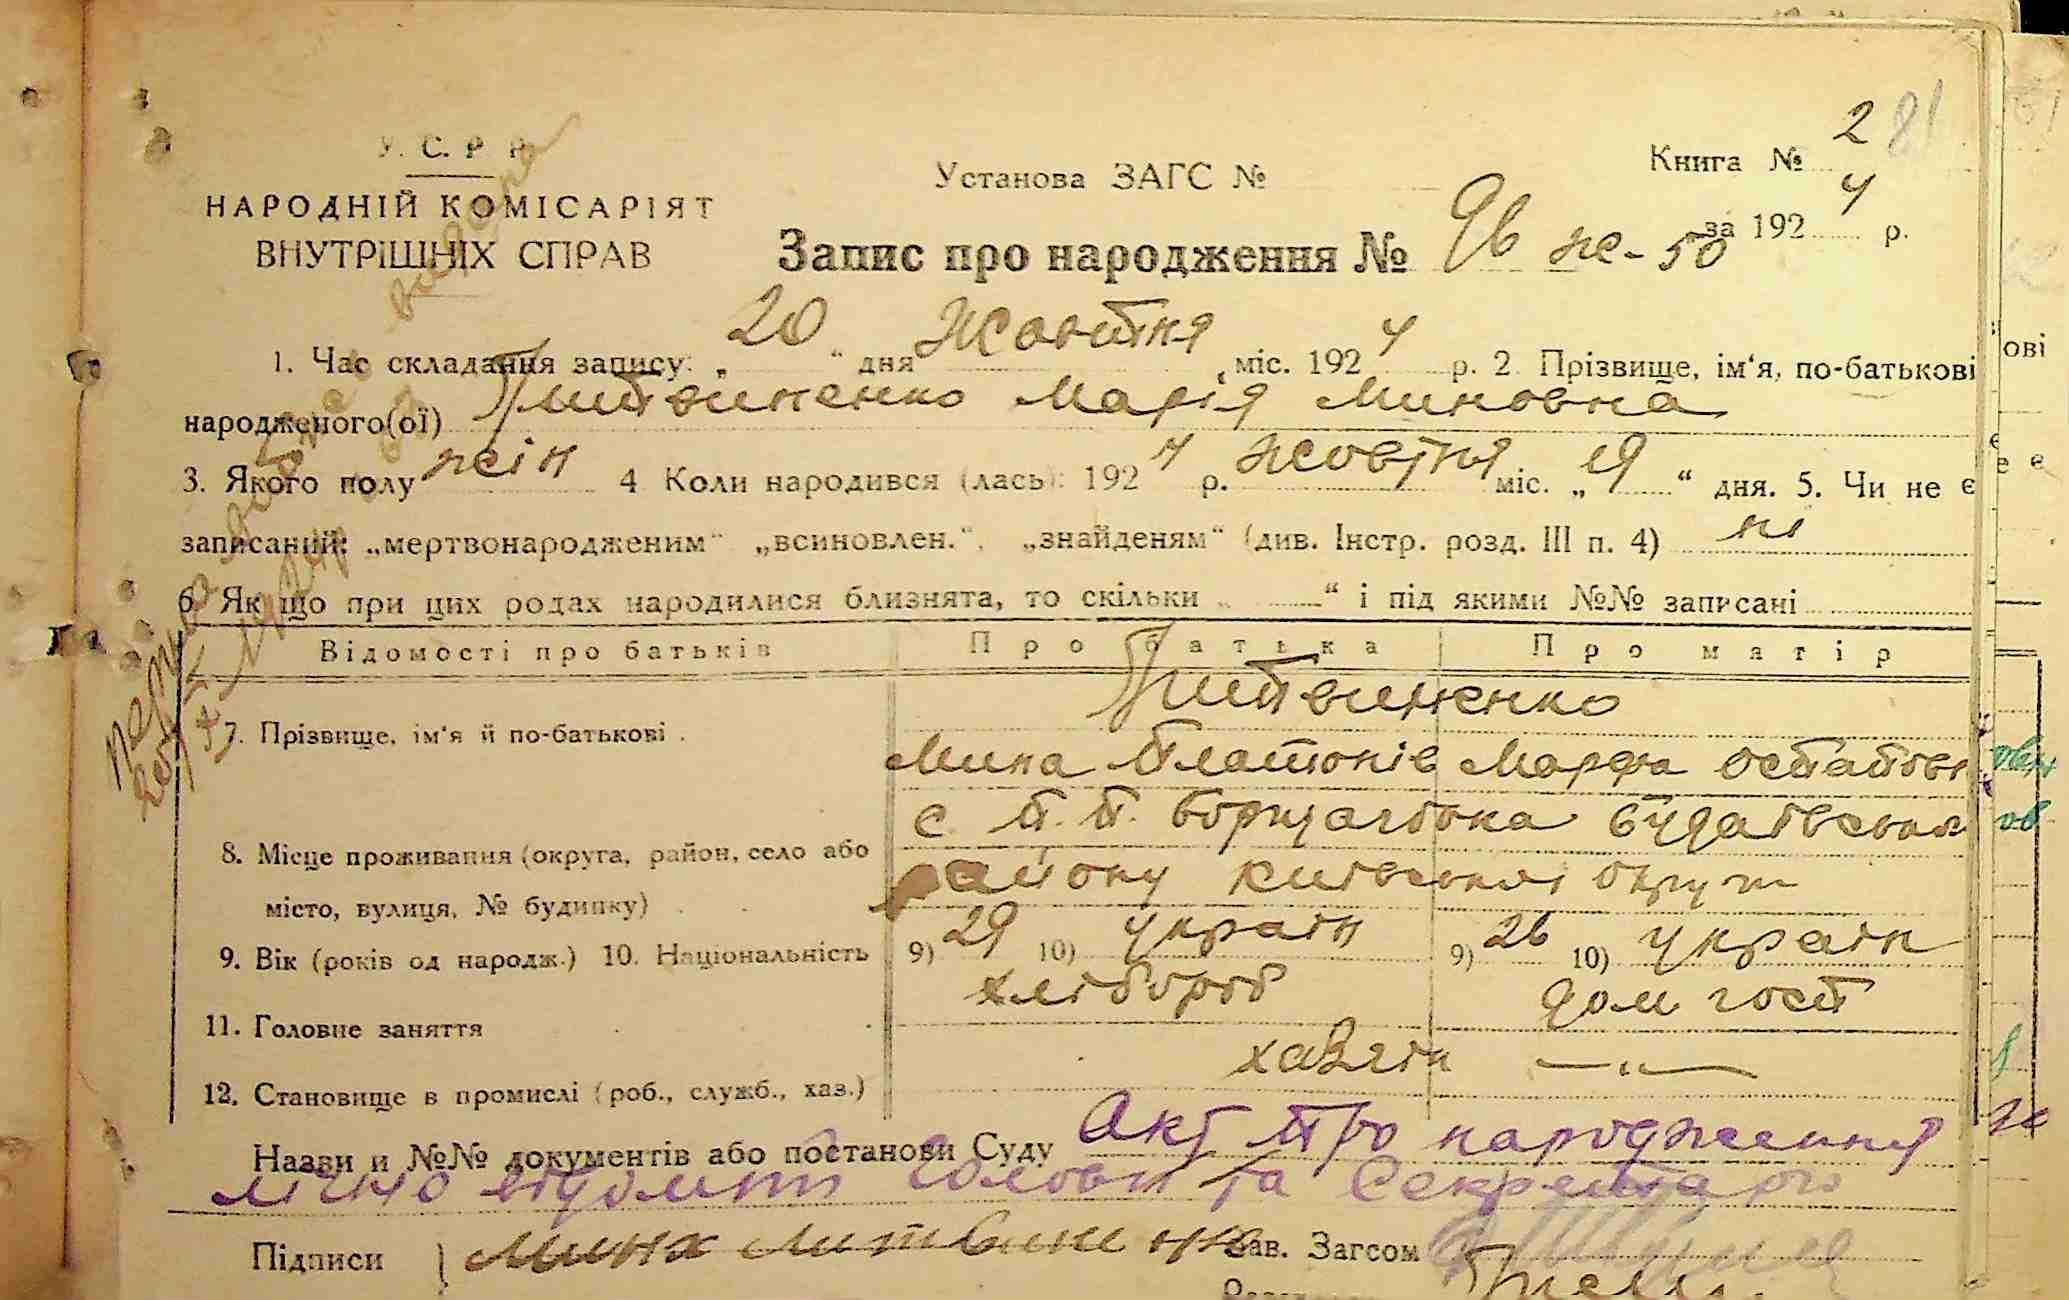 У. С. Р. Р.
НАРОДНІЙ КОМІСАРІЯТ
ВНУТРІШНІХ СПРАВ
Установа ЗАГС №
Книга № 2 81
за 1924 р.
Запис про народження № 96 ж-50
1. Час складання запису: „20“ дня Жовтня міс. 1924 р. 2. Прізвище, ім‘я, по-батькові
народженого(ої) Литвиненко Марія Миновна
3. Якого полу жін 4 Коли народився (лась): 1924 р. жовтня міс. „19“ дня. 5. Чи не є
записаний: „мертвонародженим“ „всиновлен.“, „знайденям“ (див. Інстр. розд. III п. 4) ні
6. Як що при цих родах народилися близнята, то скільки „ “ і під якими №№ записані
Відомості про батьків Про батька Про матір
Литвиненко
7. Прізвище, ім‘я й по-батькові . Мина Платонів Марфа Остапов
с. П. П. Борщагівка Будаївськ
8. Місце проживання (округа, район, село або
району Київської округи
місто, вулиця, № будинку)
9. Вік (років од народж.) 10. Національність 9) 29 10) україн 9) 26 10) україн
хлібороб дом госп
11. Головне заняття
хазяїн — „ —
12. Становище в промислі (роб., служб., хаз.)
Назви й №№ документів або постанови Суду Акт про народження
лічно відомі Голові та Секретарю
Підписи Мина Литвинен Зав. Загсом